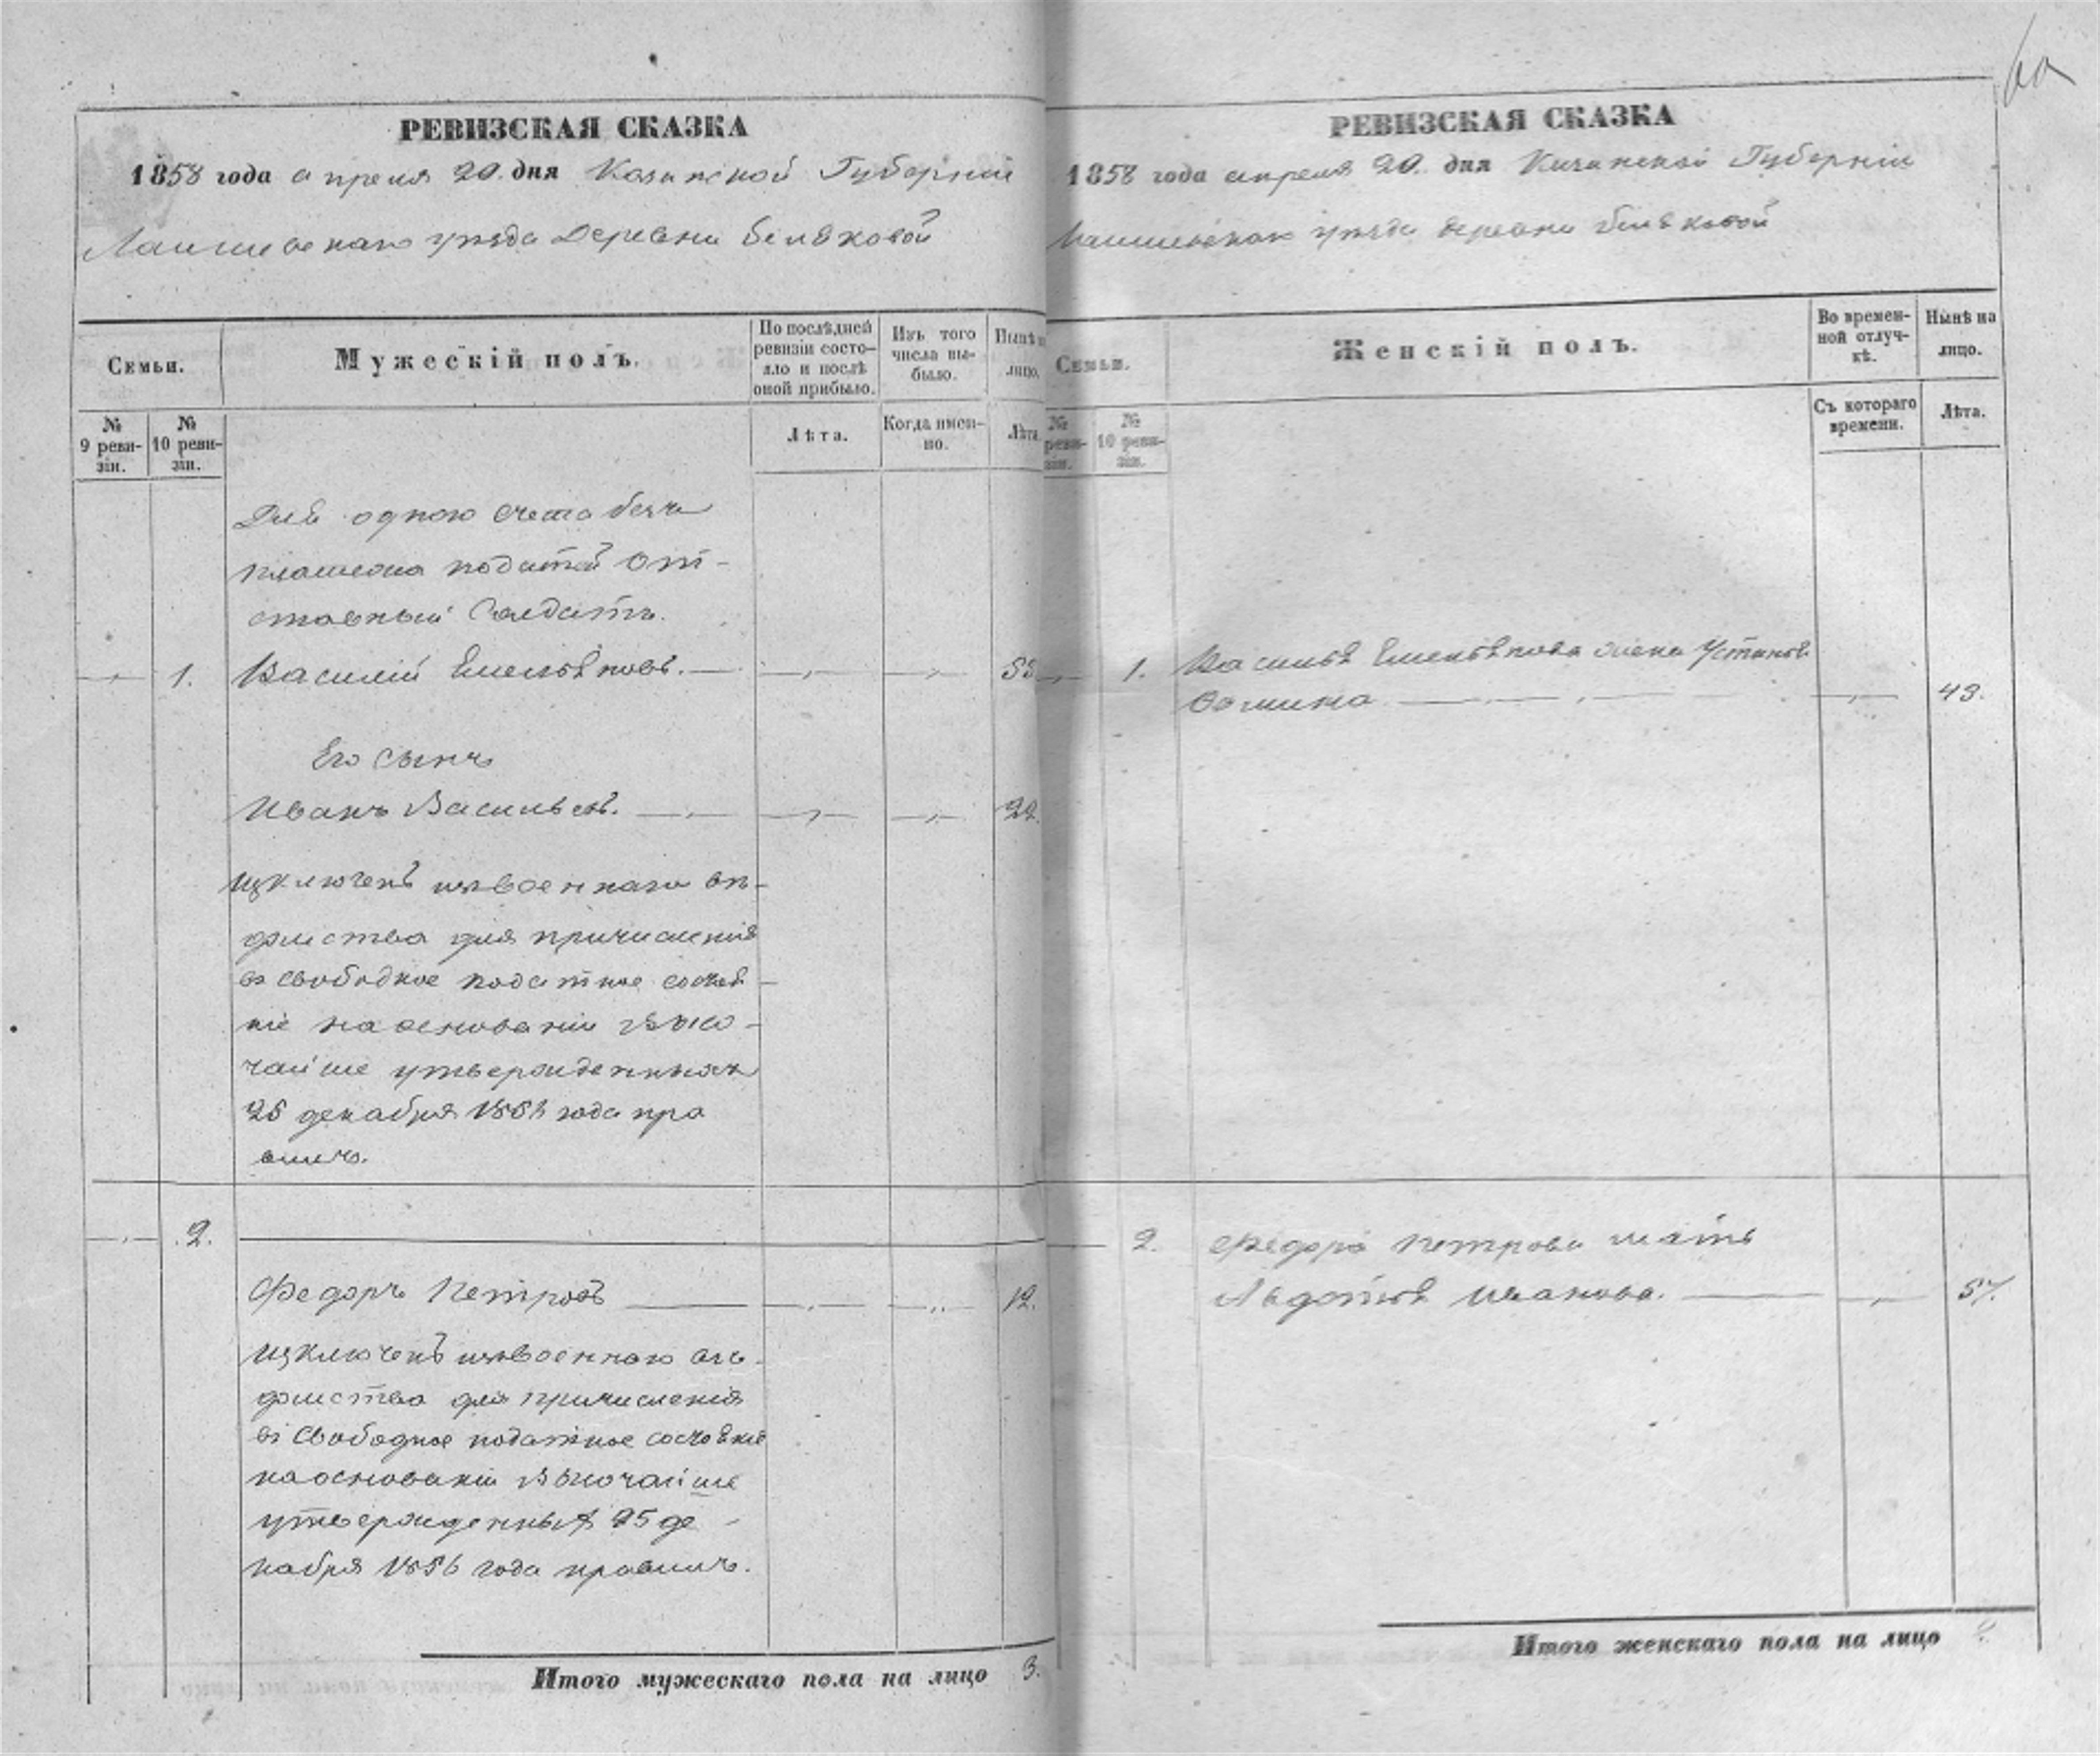 60
РЕВИЗСКАЯ СКАЗКА
1858 года апреля 20. дня Казанской Губерніи
Лаишевскаго уѣзда Деревни Бѣляковой
Семьи.
Мужескій полъ.
По послѣдней ревизіи состояло и послѣ оной прибыло.
Изъ того числа выбыло.
Нынѣ на лицо.
№ 9 ревизіи.
№ 10 ревизіи.
Лѣта.
Когда именно.
Лѣта.
Для одного счета безъ
платежа податей От-
ставный Солдатъ.
1. Василій Емельяновъ. 55.
Его сынъ
Иванъ Васильевъ. 22.
Изключенъ изъ военнаго вѣ-
домства для причисленія
въ свободное податное состоя-
ніе на основаніи Высо-
чайше утвержденныхъ
25 декабря 1856 года пра
вилъ.
2.
Федоръ Петровъ 12.
Изключенъ изъ военнаго вѣ-
домства для причисленія
въ свободное податное состояніе
на основаніи Высочайше
утвержденныхъ 25 де-
кабря 1856 года правилъ.
Итого мужескаго пола на лицо 3.
РЕВИЗСКАЯ СКАЗКА
1858 года апреля 20. дня Казанской Губерніи
Лаишевскаго уѣзда деревни Бѣляковой
Семьи.
Женскій полъ.
Во временной отлучкѣ.
Нынѣ на лицо.
№ ревизіи.
№ 10 ревизіи.
Съ котораго времени.
Лѣта.
1. Василья Емельянова жена Устинья
Фомина 43.
2. Федора Петрова мать
Авдотья Иванова. 57.
Итого женскаго пола на лицо